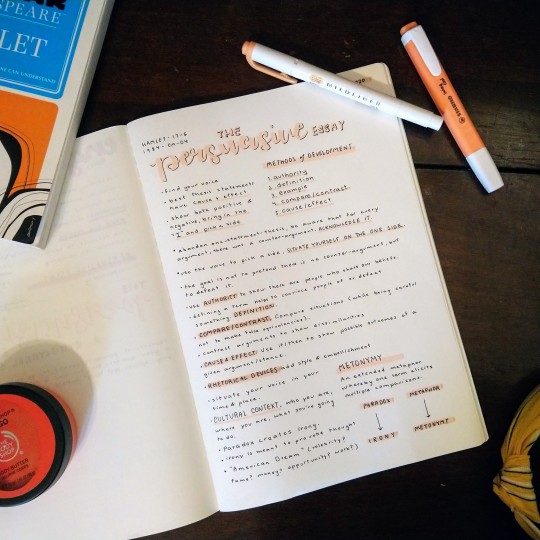 SPEARE
LET
NE CAN UNDERSTAND
MILDLINER
HAMLET-17-6
1984-EM-04
THE
persuasive ESSAY
METHODS of DEVELOPMENT
1. authority
2. definition
3. example
4. compare/contrast
5. cause/effect
• find your voice
• best thesis statements
have cause & effect
• show both positive &
negative, bring in the
"I" and pick a side
• abandon one statement thesis, be aware that for every
argument, there was a counter-argument. ACKNOWLEDGE IT.
• use the voice to pick a side, SITUATE YOURSELF ON THE ONE SIDE
• the goal is not to pretend there is no counter-argument, but
to defeat it.
• use AUTHORITY to show there are people who share our beliefs.
• defining a term helps to convince people of or defeat
something. DEFINITION.
• COMPARE/CONTRAST. Compare situations (while being careful
not to make false equivalencies).
• contrast arguments to show dissimilarities
• CAUSE & EFFECT. Use if/then to show possible outcomes of a
given argument/stance.
• RHETORICAL DEVICES add style & embellishment
• situate your voice in your
time & place.
CULTURAL CONTEXT. who you are,
where you are, what you're going
to do.
• Paradox creates irony.
• irony is meant to provoke thought
• "American Dream" (celebrity?
fame? money? opportunity? work?)
METONYMY
An extended metaphor
whereby one term elicits
multiple comparisons.
PARADOX METAPHOR
↓ ↓
IRONY METONYMY
THE BODY SHOP
BODY BUTTER